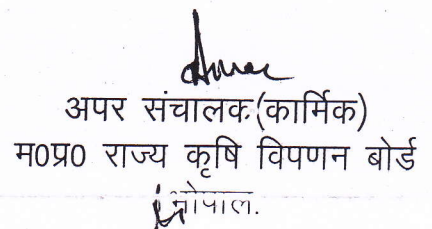 अपर संचालक(कार्मिक)
म0प्र0 राज्य कृषि विपणन बोर्ड
भोपाल.